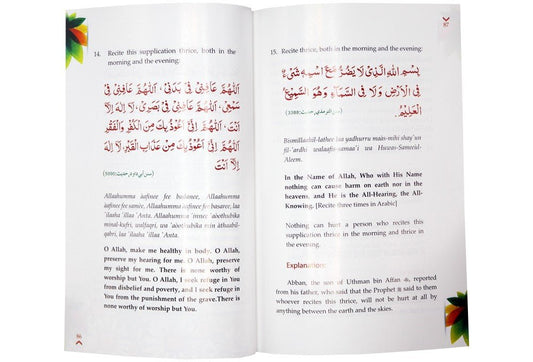 14. Recite this supplication thrice, both in the
morning and the evening:
اَللّٰهُمَّ عَافِنِيْ فِيْ بَدَنِيْ، اَللّٰهُمَّ عَافِنِيْ فِيْ
سَمْعِيْ، اَللّٰهُمَّ عَافِنِيْ فِيْ بَصَرِيْ، لَا اِلٰهَ اِلَّا
اَنْتَ، اَللّٰهُمَّ اِنِّيْ اَعُوْذُ بِكَ مِنَ الْكُفْرِ وَالْفَقْرِ
اَللّٰهُمَّ اِنِّيْ اَعُوْذُ بِكَ مِنْ عَذَابِ الْقَبْرِ، لَا اِلٰهَ
اِلَّا اَنْتَ
(سنن أبي داود، حديث: 5090)
Allaahumma 'aafinee fee badanee, Allaahumma
'aafinee fee sam'ee, Allaahumma 'aafinee fee basaree, laa
'ilaaha 'illaa 'Anta. Allaahumma 'innee 'a'oothubika
minal-kufri, walfaqri, wa 'a'oothubika min 'athaabil-
qabri, laa 'ilaaha 'illaa 'Anta.
O Allah, make me healthy in body. O Allah,
preserve my hearing for me. O Allah, preserve
my sight for me. There is none worthy of
worship but You. O Allah, I seek refuge in You
from disbelief and poverty, and I seek refuge in
You from the punishment of the grave.There is
none worthy of worship but You.
86
87
15. Recite thrice, both in the morning and the evening:
بِسْمِ اللّٰهِ الَّذِيْ لَا يَضُرُّ مَعَ اسْمِهٖ شَيْءٌ
فِي الْاَرْضِ وَلَا فِي السَّمَاءِ وَهُوَ السَّمِيْعُ
الْعَلِيْمُ.
(سنن الترمذي، حديث: 3388)
Bismillaahil-lathee laa yadhurru maás-mihi shay'un
fil-'ardhi walaafis-samaa'i wa Huwas-Sameeul-
Aleem.
In the Name of Allah, Who with His Name
nothing can cause harm on earth nor in the
heavens, and He is the All-Hearing, the All-
Knowing. [Recite three times in Arabic]
Nothing can hurt a person who recites this
supplication thrice in the morning and thrice in
the evening.
Explanation:
Abban, the son of Uthman bin Affan, reported
from his father, who said that the Prophet ﷺ said to them
whoever recites this thrice, will not be hurt at all by
anything between the earth and the skies.